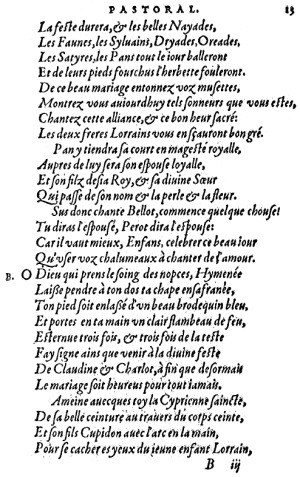 PASTORAL. 13
La feste durera, & les belles Nayades,
Les Faunes, les Syluains, Dryades, Oreades,
Les Satyres, les Pans tout le iour balleront
Et de leurs pieds fourchus l'herbette fouleront.
De ce beau mariage entonnez voz musettes,
Montrez vous auiourdhuy tels sonneurs que vous estes,
Chantez cette alliance, & ce bon heur sacré:
Les deux freres Lorrains vous en sçauront bon gré.
Pan y tiendra sa court en magesté royalle,
Aupres de luy sera son espouse loyalle,
Et son filz desia Roy, & sa diuine Sœur
Qui passe de son nom & la perle & la fleur.
Sus donc chante Bellot, commence quelque chose:
Tu diras l'espousé, Perot dira l'espouse:
Car il vaut mieux, Enfans, celebrer ce beau iour
Qu'vser voz chalumeaux à chanter de l'amour.
B. O Dieu qui prens le soing des nopces, Hymenée
Laisse pendre à ton dos ta chape ensafranée,
Ton pied soit enlassé d'vn beau brodequin bleu,
Et portes en ta main vn clair flambeau de feu,
Esternue trois fois, & trois fois de la teste
Fay signe ains que venir à la diuine feste
De Claudine & Charlot, à fin que desormais
Le mariage soit heureux pour tout iamais.
Ameine auecques toy la Cyprienne saincte,
De sa belle ceinture au trauers du corps ceinte,
Et son fils Cupidon auec l'arc en la main,
Pour se cacher es yeux du jeune enfant Lorrain,
B iij